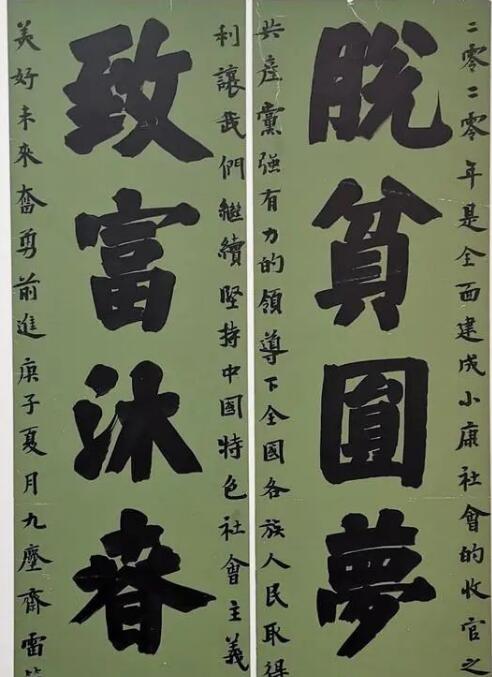 二零二零年是全面建成小康社會的收官之
脱貧圓夢
共產黨強有力的領導下全國各族人民取得
利讓我們繼續堅持中國特色社會主義
致富沐春
美好未來奮勇前進庚子夏月九塵齋雷